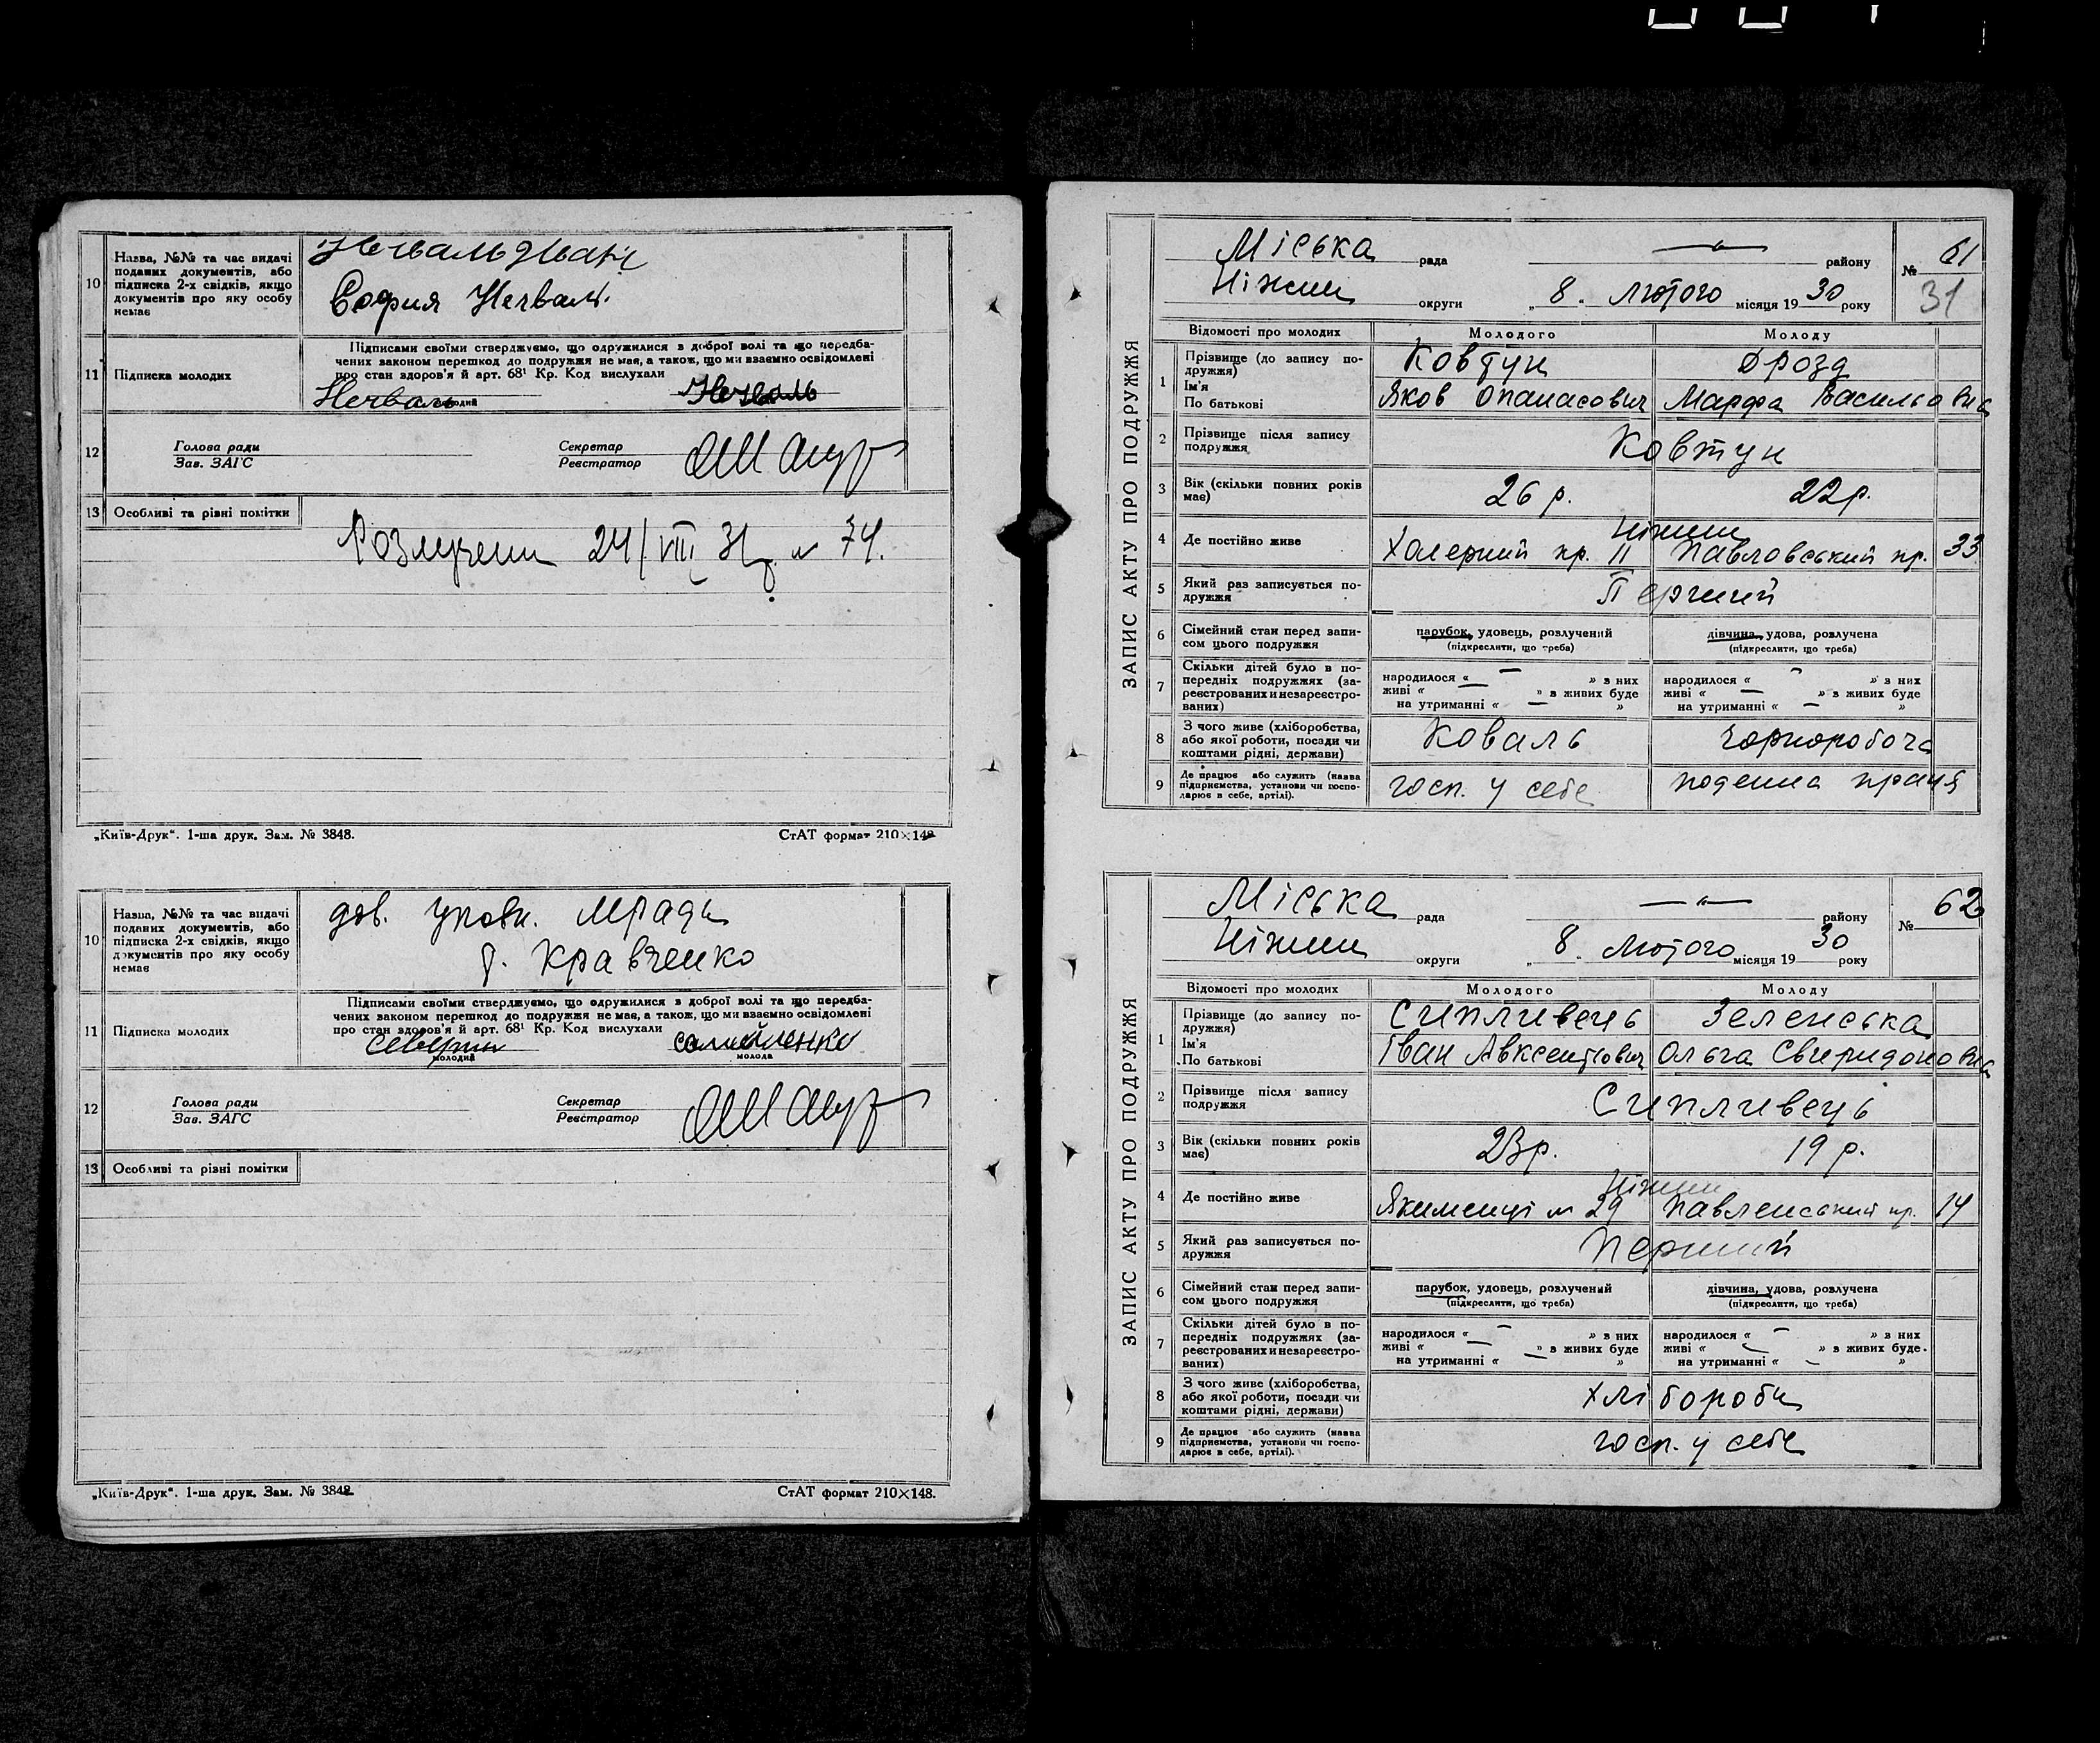 10
Назва, №№ та час видачі
поданих документів, або
підписка 2-х свідків, якщо
документів про яку особу
немає
София Нечваль
11
Підписка молодих
Підписами своїми стверджуємо, що одружилися з доброї волі та що передба-
чених законом перешкод до подружжя не мав, а також, що ми взаємно освідомлені
про стан здоров'я й арт. 68¹ Кр. Код вислухали
Нечваль
Нечваль
12
Голова ради
Зав. ЗАГС
Секретар
Реєстратор
13
Особливі та різні помітки
Розлучени 24/VIII 31 р. № 74.
„Київ-Друк“. 1-ша друк. Зам. № 3848.
СтАТ формат 210×148
10
Назва, №№ та час видачі
поданих документів, або
підписка 2-х свідків, якщо
документів про яку особу
немає
дов. Уповн. МРади
Кравченко
11
Підписка молодих
Підписами своїми стверджуємо, що одружилися з доброї волі та що передба-
чених законом перешкод до подружжя не мав, а також, що ми взаємно освідомлені
про стан здоров'я й арт. 68¹ Кр. Код вислухали
молодий
молода
12
Голова ради
Зав. ЗАГС
Секретар
Реєстратор
13
Особливі та різні помітки
„Київ-Друк“. 1-ша друк. Зам. № 3848
СтАТ формат 210×148.
ЗАПИС АКТУ ПРО ПОДРУЖЖЯ
Міська рада району № 61
31
Ніжин округи „ 8 . Лютого місяця 1930 року
Відомості про молодих Молодого Молоду
1
Прізвище (до запису по-
дружжя)
Ковтун Дрозд
Ім'я
По батькові
Яков Опанасович Марфа Васильовна
2
Прізвище після запису
подружжя
Ковтун
3
Вік (скільки повних років
має)
26 р. 22 р.
4
Де постійно живе
Ніжин
Холерний пр. 11 Павловський пр. 33
5
Який раз записується по-
дружжя
Перший
6
Сімейний стан перед запи-
сом цього подружжя
парубок, удовець, розлучений
(підкреслити, що треба)
дівчина, удова, розлучена
(підкреслити, що треба)
7
Скільки дітей було в по-
передніх подружжях (за-
реєстрованих и незареєстро-
ваних)
народилося « — » з них
живі « — » з живих буде
на утриманні « — »
народилося « — » з них
живі « — » з живих буде
на утриманні « — »
8
З чого живе (хліборобства,
або якої роботи, посади чи
коштами рідні, держави)
Коваль Чорноробоча
9
Де працює або служить (назва
підприємства, установи чи госпо-
дарює в себе, артілі).
госп. у себе поденна праця
ЗАПИС АКТУ ПРО ПОДРУЖЖЯ
Міська рада району № 62
Ніжин округи „ 8 . Лютого місяця 1930 року
Відомості про молодих Молодого Молоду
1
Прізвище (до запису по-
дружжя)
Сипливець Зеленська
Ім'я
По батькові
Іван Авксентієвич Ольга Свиридоновна
2
Прізвище після запису
подружжя
Сипливець
3
Вік (скільки повних років
має)
23 р. 19 р.
4
Де постійно живе
Ніжин
Якименці № 29 Павленський пр. 14
5
Який раз записується по-
дружжя
Перший
6
Сімейний стан перед запи-
сом цього подружжя
парубок, удовець, розлучений
(підкреслити, що треба)
дівчина, удова, розлучена
(підкреслити, що треба)
7
Скільки дітей було в по-
передніх подружжях (за-
реєстрованих и незареєстро-
ваних)
народилося « — » з них
живі « — » з живих буде
на утриманні « — »
народилося « — » з них
живі « — » з живих буде.
на утриманні « — »
8
З чого живе (хліборобства,
або якої роботи, посади чи
коштами рідні, держави)
хлібороби
9
Де працює або служить (назва
підприємства, установи чи госпо-
дарює в себе, артілі).
госп. у себе